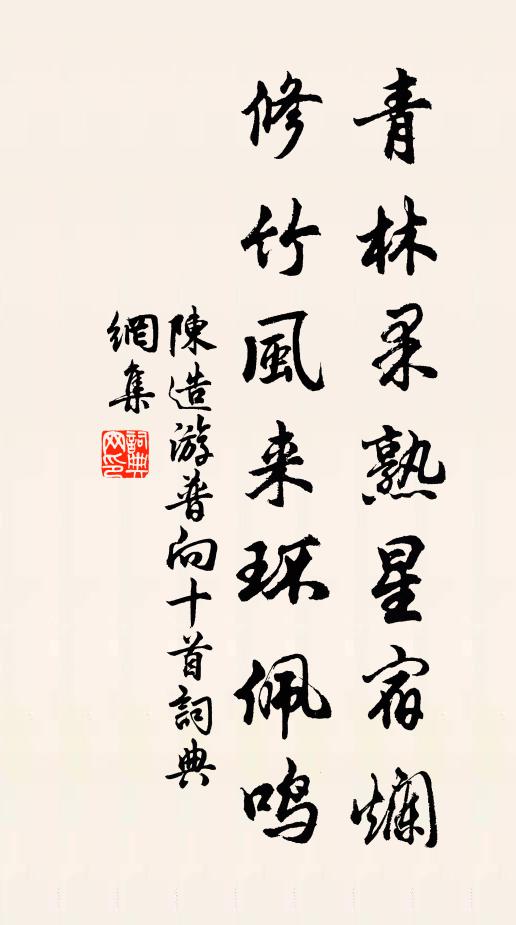 青林果熟星宿爛
修竹風来环佩鳴
陳造游普向十首詞典
網集
詞典
网